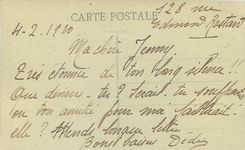 CARTE POSTALE
128 rue
Edmond Rostand
4-2.1920
Ma chère Jenny,
Très étonnée de ton long silence!!
Que deviens-tu? Serait-tu souffrante
ou ton amitié pour moi faiblirait-
elle? Attends longue lettre
Bons baisers Dédée